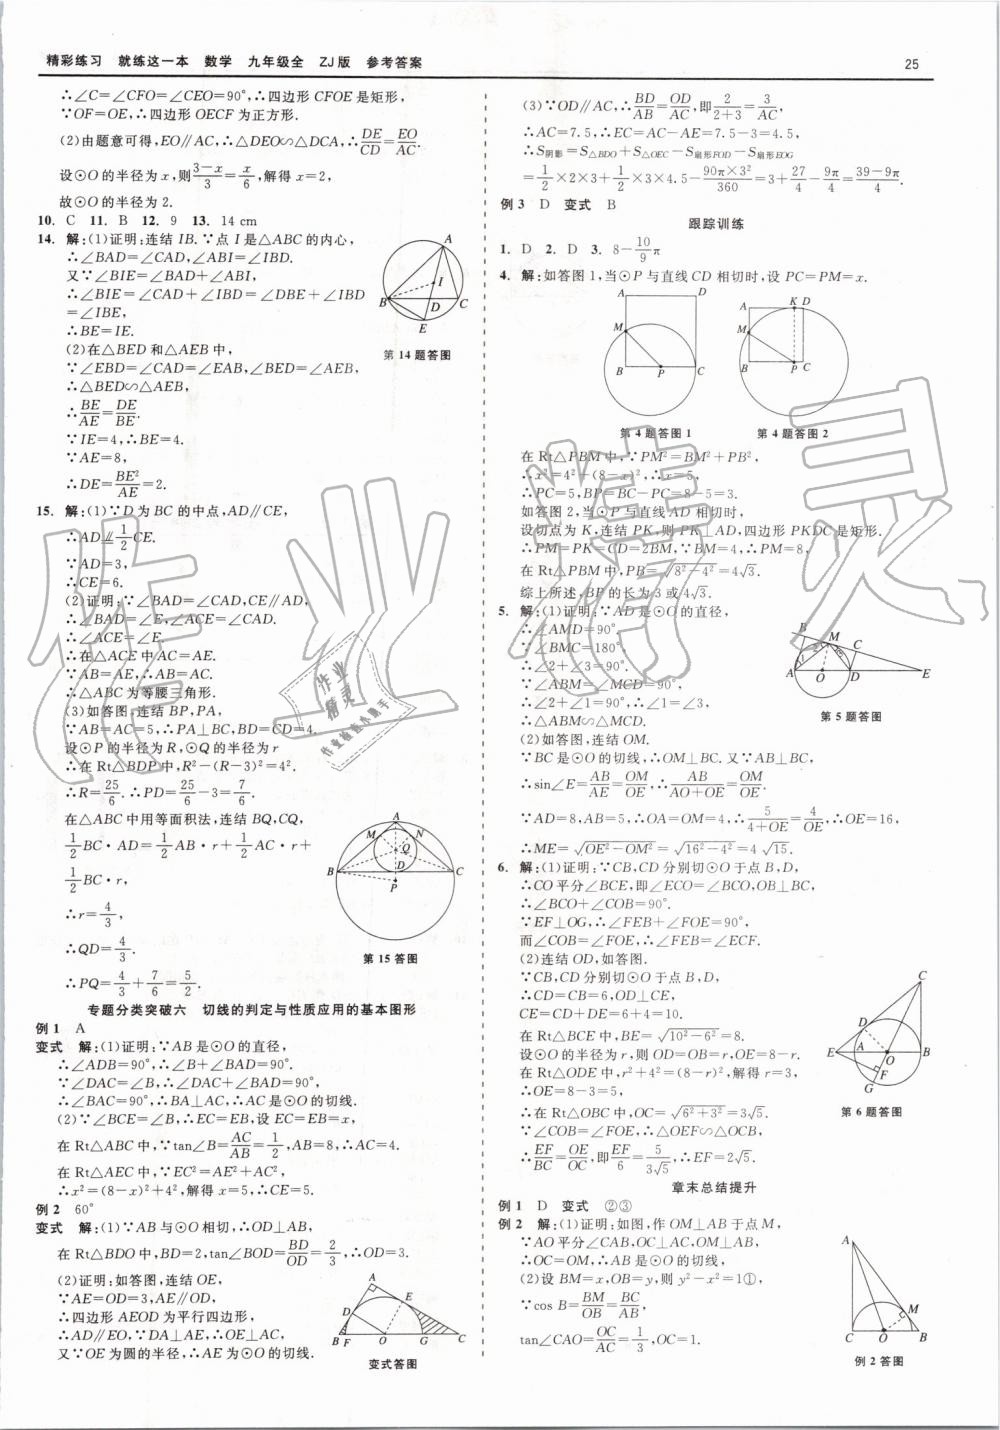 精彩练习　就练这一本　数学　九年级全　ZJ版　参考答案
25
∴∠C=∠CFO=∠CEO=90°,∴四边形 CFOE 是矩形,
∵OF=OE,∴四边形 OECF 为正方形.
(2)由题意可得,EO∥AC,∴△DEO∽△DCA,∴DE/CD=EO/AC.
设⊙O 的半径为 x,则(3-x)/3=x/6,解得 x=2,
故⊙O 的半径为 2.
10. C　11. B　12. 9　13. 14 cm
14. 解:(1)证明:连结 IB.∵点 I 是△ABC 的内心,
∴∠BAD=∠CAD,∠ABI=∠IBD.
又∵∠BIE=∠BAD+∠ABI,
∴∠BIE=∠CAD+∠IBD=∠DBE+∠IBD
=∠IBE,
∴BE=IE.
(2)在△BED 和△AEB 中,
∵∠EBD=∠CAD=∠EAB,∠BED=∠BEA,
∴△BED∽△AEB,
∴BE/AE=DE/BE.
∵IE=4,∴BE=4.
∵AE=8,
∴DE=BE²/AE=2.
A
I
B
D
C
E
第 14 题答图
15. 解:(1)∵D 为 BC 的中点,AD∥CE,
∴AD⫽1/2CE.
∵AD=3,
∴CE=6.
(2)证明:∵∠BAD=∠CAD,CE∥AD,
∴∠BAD=∠E,∠ACE=∠CAD.
∴∠ACE=∠E.
∴在△ACE 中,AC=AE.
∵AB=AE,∴AB=AC.
∴△ABC 为等腰三角形.
(3)如答图,连结 BP,PA,
∵AB=AC=5,∴PA⊥BC,BD=CD=4.
设⊙P 的半径为 R,⊙Q 的半径为 r
∴在 Rt△BDP 中,R²-(R-3)²=4².
∴R=25/6.∴PD=25/6-3=7/6.
在△ABC 中用等面积法,连结 BQ,CQ,
1/2BC·AD=1/2AB·r+1/2AC·r+
1/2BC·r,
∴r=4/3,
∴QD=4/3.
∴PQ=4/3+7/6=5/2.
A
M
N
Q
B
D
C
P
第 15 答图
专题分类突破六　切线的判定与性质应用的基本图形
例 1　A
变式　解:(1)证明:∵AB 是⊙O 的直径,
∴∠ADB=90°,∴∠B+∠BAD=90°.
∵∠DAC=∠B,∴∠DAC+∠BAD=90°,
∴∠BAC=90°,∴BA⊥AC,∴AC 是⊙O 的切线.
(2)∵∠BCE=∠B,∴EC=EB,设 EC=EB=x,
在 Rt△ABC 中,∵tan∠B=AC/AB=1/2,AB=8,∴AC=4.
在 Rt△AEC 中,∵EC²=AE²+AC²,
∴x²=(8-x)²+4²,解得 x=5,∴CE=5.
例 2　60°
变式　解:(1)∵AB 与⊙O 相切,∴OD⊥AB,
在 Rt△BDO 中,BD=2,tan∠BOD=BD/OD=2/3,∴OD=3.
(2)证明:如答图,连结 OE,
∵AE=OD=3,AE∥OD,
∴四边形 AEOD 为平行四边形,
∴AD∥EO.∵DA⊥AE,∴OE⊥AC.
又∵OE 为圆的半径,∴AE 为⊙O 的切线.
A
E
D
B F
O
G
C
变式答图
(3)∵OD∥AC,∴BD/AB=OD/AC,即2/(2+3)=3/AC,
∴AC=7.5,∴EC=AC-AE=7.5-3=4.5,
∴S阴影=S△BDO+S△OEC-S扇形FOD-S扇形EOG
=1/2×2×3+1/2×3×4.5-90π×3²/360=3+27/4-9π/4=(39-9π)/4.
例 3　D　变式　B
跟踪训练
1. D　2. D　3. 8-10/9π
4. 解:如答图 1,当⊙P 与直线 CD 相切时,设 PC=PM=x.
A
D
M
B
P
C
第 4 题答图 1
A
K D
M
B
P C
第 4 题答图 2
在 Rt△PBM 中,∵PM²=BM²+PB²,
∴x²=4²+(8-x)²,∴x=5,
∴PC=5,BP=BC-PC=8-5=3.
如答图 2,当⊙P 与直线 AD 相切时,
设切点为 K,连结 PK,则 PK⊥AD,四边形 PKDC 是矩形.
∴PM=PK=CD=2BM,∵BM=4,∴PM=8,
在 Rt△PBM 中,PB=√(8²-4²)=4√3.
综上所述,BP 的长为 3 或 4√3.
5. 解:(1)证明:∵AD 是⊙O 的直径,
∴∠AMD=90°,
∵∠BMC=180°,
∴∠2+∠3=90°.
∵∠ABM=∠MCD=90°,
∴∠2+∠1=90°,∴∠1=∠3,
∴△ABM∽△MCD.
(2)如答图,连结 OM.
∵BC 是⊙O 的切线,∴OM⊥BC.又∵AB⊥BC,
∴sin∠E=AB/AE=OM/OE,∴AB/(AO+OE)=OM/OE.
∵AD=8,AB=5,∴OA=OM=4,∴5/(4+OE)=4/OE,∴OE=16,
∴ME=√(OE²-OM²)=√(16²-4²)=4√15.
B
M
C
1
2
A
O
D
E
第 5 题答图
6. 解:(1)证明:∵CB,CD 分别切⊙O 于点 B,D,
∴CO 平分∠BCE,即∠ECO=∠BCO,OB⊥BC,
∴∠BCO+∠COB=90°.
∵EF⊥OG,∴∠FEB+∠FOE=90°,
而∠COB=∠FOE,∴∠FEB=∠ECF.
(2)连结 OD,如答图.
∵CB,CD 分别切⊙O 于点 B,D,
∴CD=CB=6,OD⊥CE,
CE=CD+DE=6+4=10.
在 Rt△BCE 中,BE=√(10²-6²)=8.
设⊙O 的半径为 r,则 OD=OB=r,OE=8-r.
在 Rt△ODE 中,r²+4²=(8-r)²,解得 r=3,
∴OE=8-3=5,
∴在 Rt△OBC 中,OC=√(6²+3²)=3√5.
∵∠COB=∠FOE,∴△OEF∽△OCB,
∴EF/BC=OE/OC,即EF/6=5/3√5,∴EF=2√5.
C
D
E
A
O
B
F
G
第 6 题答图
章末总结提升
例 1　D　变式　②③
例 2　解:(1)证明:如图,作 OM⊥AB 于点 M,
∵AO 平分∠CAB,OC⊥AC,OM⊥AB,
∴OC=OM,∴AB 是⊙O 的切线.
(2)设 BM=x,OB=y,则 y²-x²=1①,
∵cos B=BM/OB=BC/AB,
tan∠CAO=OC/AC=1/3,OC=1.
A
M
C
O
B
例 2 答图
作业精灵
作业
精灵
作业检查小助手